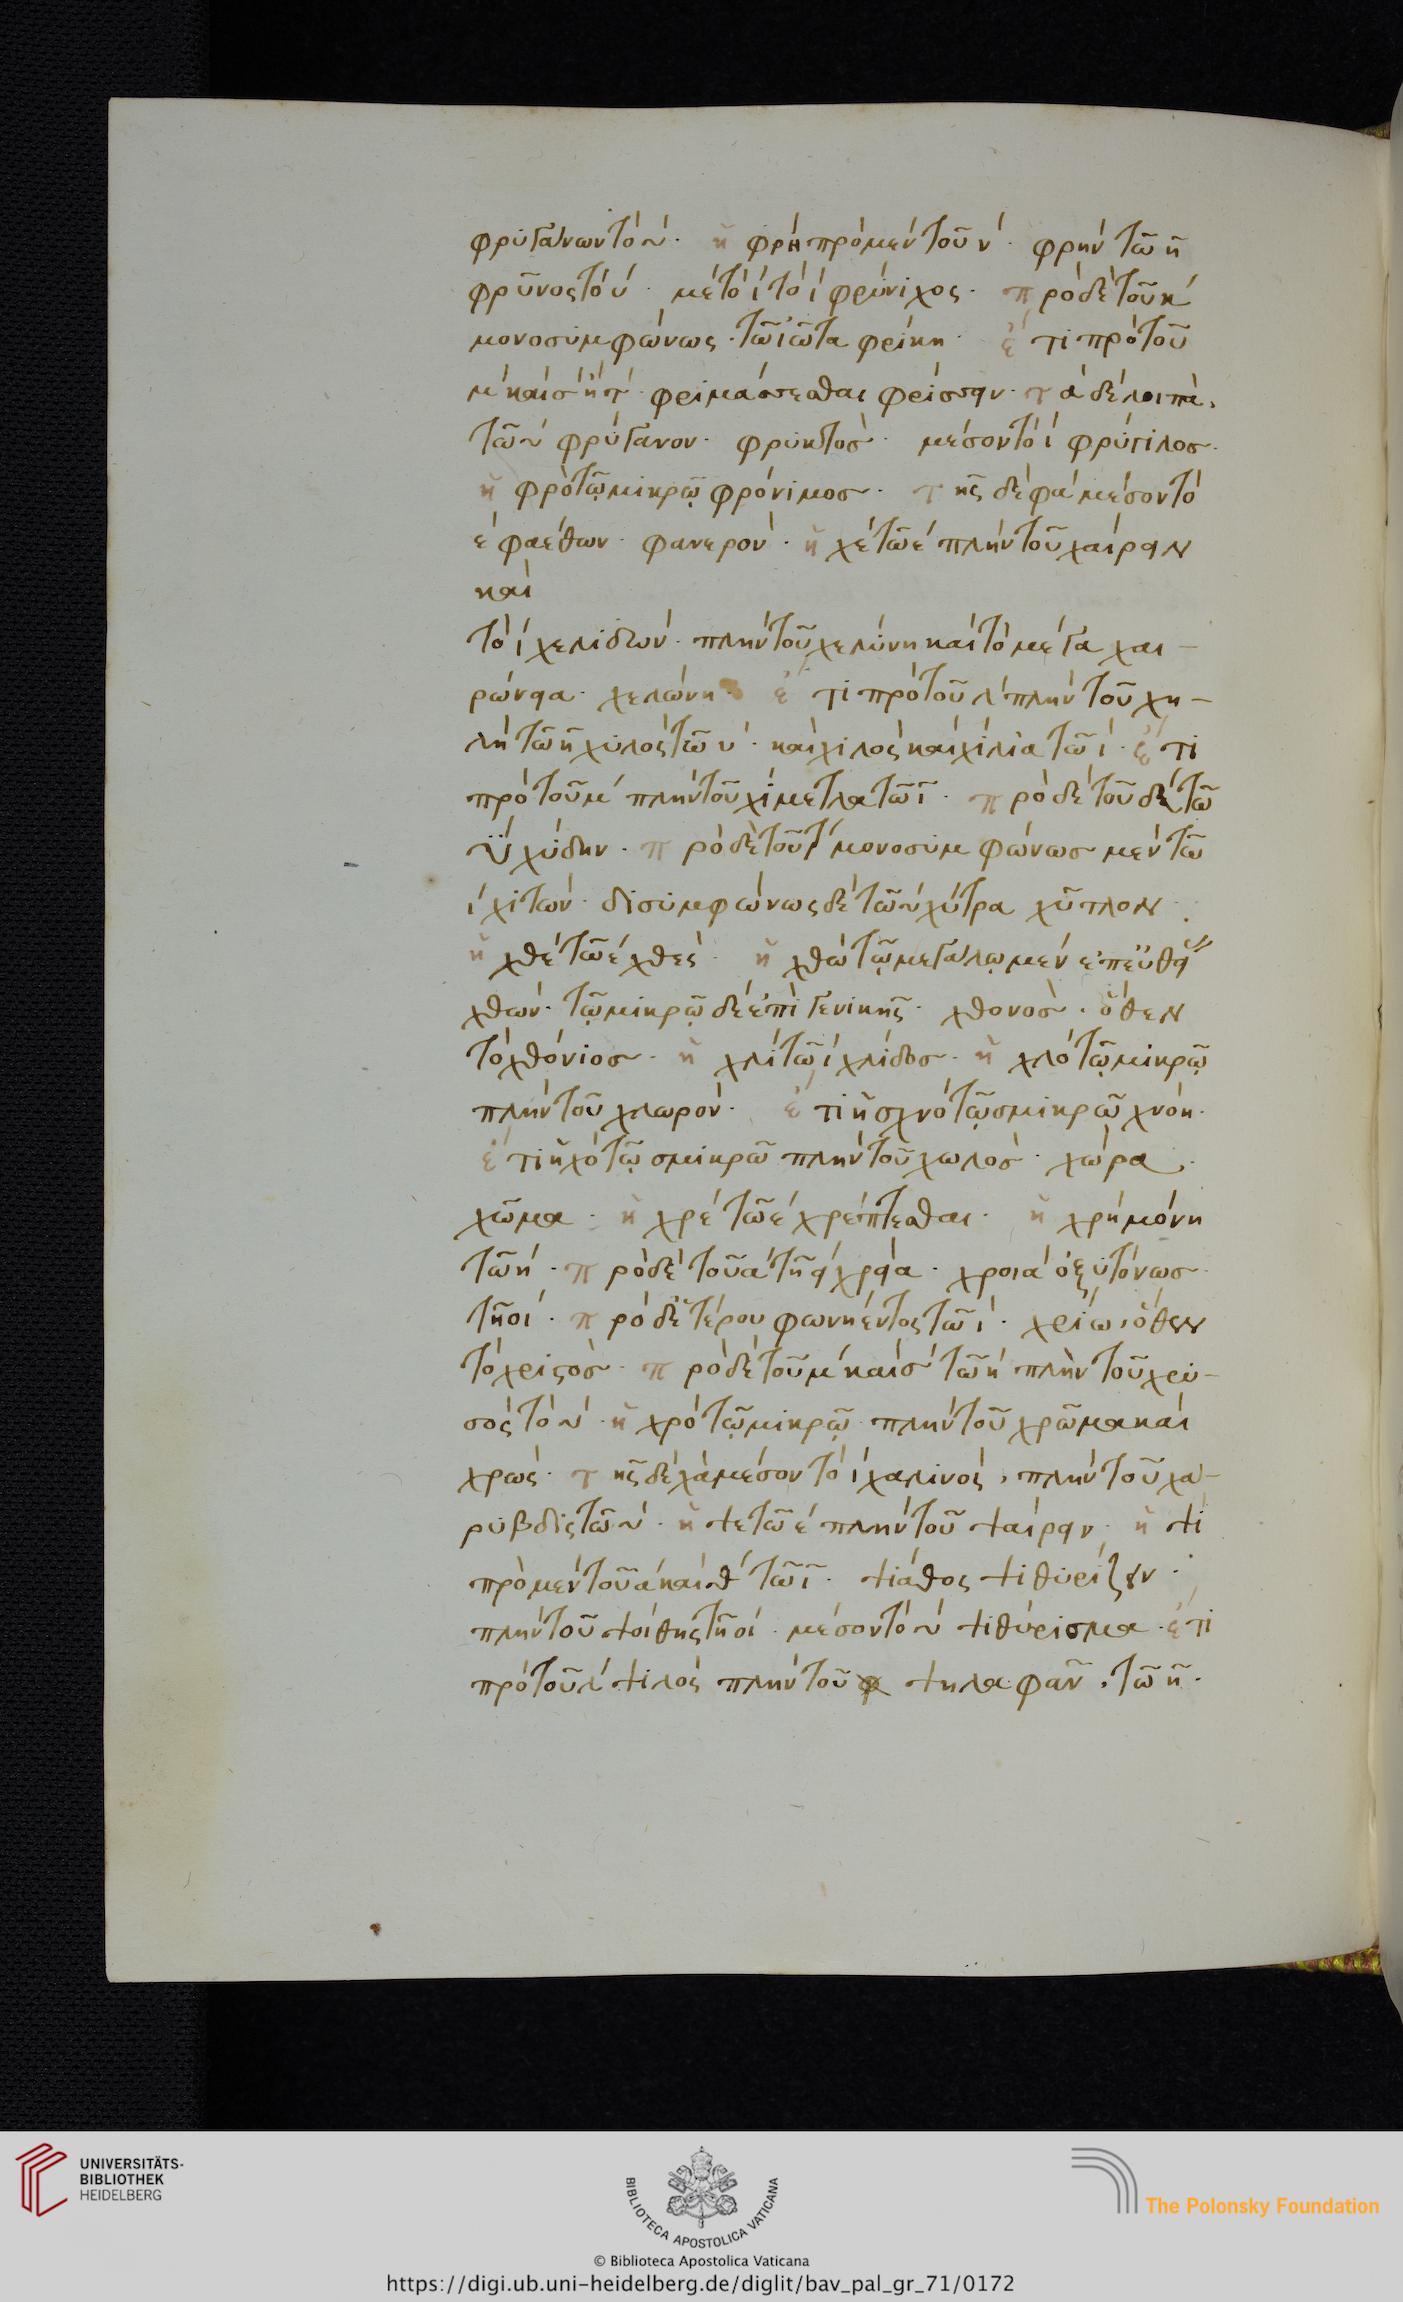 φρυγάνων τὸ υ. ἡ φρη πρὸ μὲν τοῦ ν. φρήν τῶ η
φρῦνος τὸ υ. μέτὸ ι τὸ ι φρύνιχος. πρὸ δὲ τοῦ κ
μονοσυμφώνως τῶ ἰῶτα φρίκη. ἔτι πρὸ τοῦ
μ καὶ σ ἢ τ φριμάσσεσθαι φρίσσειν. τὰ δὲ λοιπὰ.
τῶ υ φρύγανον. φρυκτὸσ. μέσον τὸ ι φρύγιλοσ.
ἡ φρὸ τῶ μικρῶ φρόνιμοσ. τῆς δὲ φα μέσον τὸ
ε φαέθων. φανερόν. ἡ χέ τῶ ε πλὴν τοῦ χαίρειν
καὶ
τὸ ι χελιδών. πλὴν τοῦ χελύνη καὶ τὸ μέγα χαι-
ρώνεια. χελώνη. ἔτι πρὸ τοῦ λ πλὴν τοῦ χη-
λὴ τῶ η χυλός τῶ υ. καὶ χιλὸς καὶ χίλια τῶ ι. ἔτι
πρὸ τοῦ μ πλὴν τοῦ χίμετλα τῶ ι. πρὸ δὲ τοῦ δέλτα τῶ
υ χύδην. πρὸ δὲ τοῦ τ μονοσυμφώνωσ μὲν τῶ
ι χιτών. δισυμφώνως δὲ τῶ υ χύτρα χῦτλον.
ἡ χθέ τῶ ε χθές. ἡ χθω τῶ μεγάλω μὲν ἐπ' εὐθείας
χθών. τῶ μικρῶ δὲ ἐπὶ γενικῆς. χθονὸσ. ὅθεν
τὸ χθόνιοσ. ἡ χλί τῶ ι χλίδοσ. ἡ χλό τῶ μικρῶ
πλὴν τοῦ χλωρόν. ἔτι ἡ σχνὸ τῶ σμικρῶ χνόη.
ἔτι ἡ χὸ τῶ σμικρῶ πλὴν τοῦ χωλὸσ. χώρα.
χῶμα. ἡ χρέ τῶ ε χρέπτεσθαι. ἡ χρή μόνη
τῶ η. πρὸ δὲ τοῦ α τῆ ει χρεία. χροιά ὀξυτόνωσ
τῆ οι. πρὸ δὲ ἑτέρου φωνήεντος τῶ ι. χρίω. ὅθεν
τὸ χριστὸσ. πρὸ δὲ τοῦ μ καὶ σ τῶ η πλὴν τοῦ χρυ-
σός τὸ υ. ἡ χρό τῶ μικρῶ πλὴν τοῦ χρῶμα καὶ
χρώς. τῆς δὲ χα μέσον τὸ ι χαλινός, πλὴν τοῦ χα-
ρυβδις τῶ υ. ἡ ψε τῶ ε πλὴν τοῦ ψαίρειν. ἡ ψι
πρὸ μὲν τοῦ α καὶ θ τῶ ι. ψίαθος ψιθυρίζων.
πλὴν τοῦ ψοίθης τῆ οι. μέσον τὸ υ ψιθύρισμα. ἔτι
πρὸ τοῦ λ ψιλός πλὴν τοῦ ψηλαφᾶν. τῶ η.
UNIVERSITÄTS-
BIBLIOTHEK
HEIDELBERG
BIBLIOTECA APOSTOLICA VATICANA
The Polonsky Foundation
© Biblioteca Apostolica Vaticana
https://digi.ub.uni-heidelberg.de/diglit/bav_pal_gr_71/0172